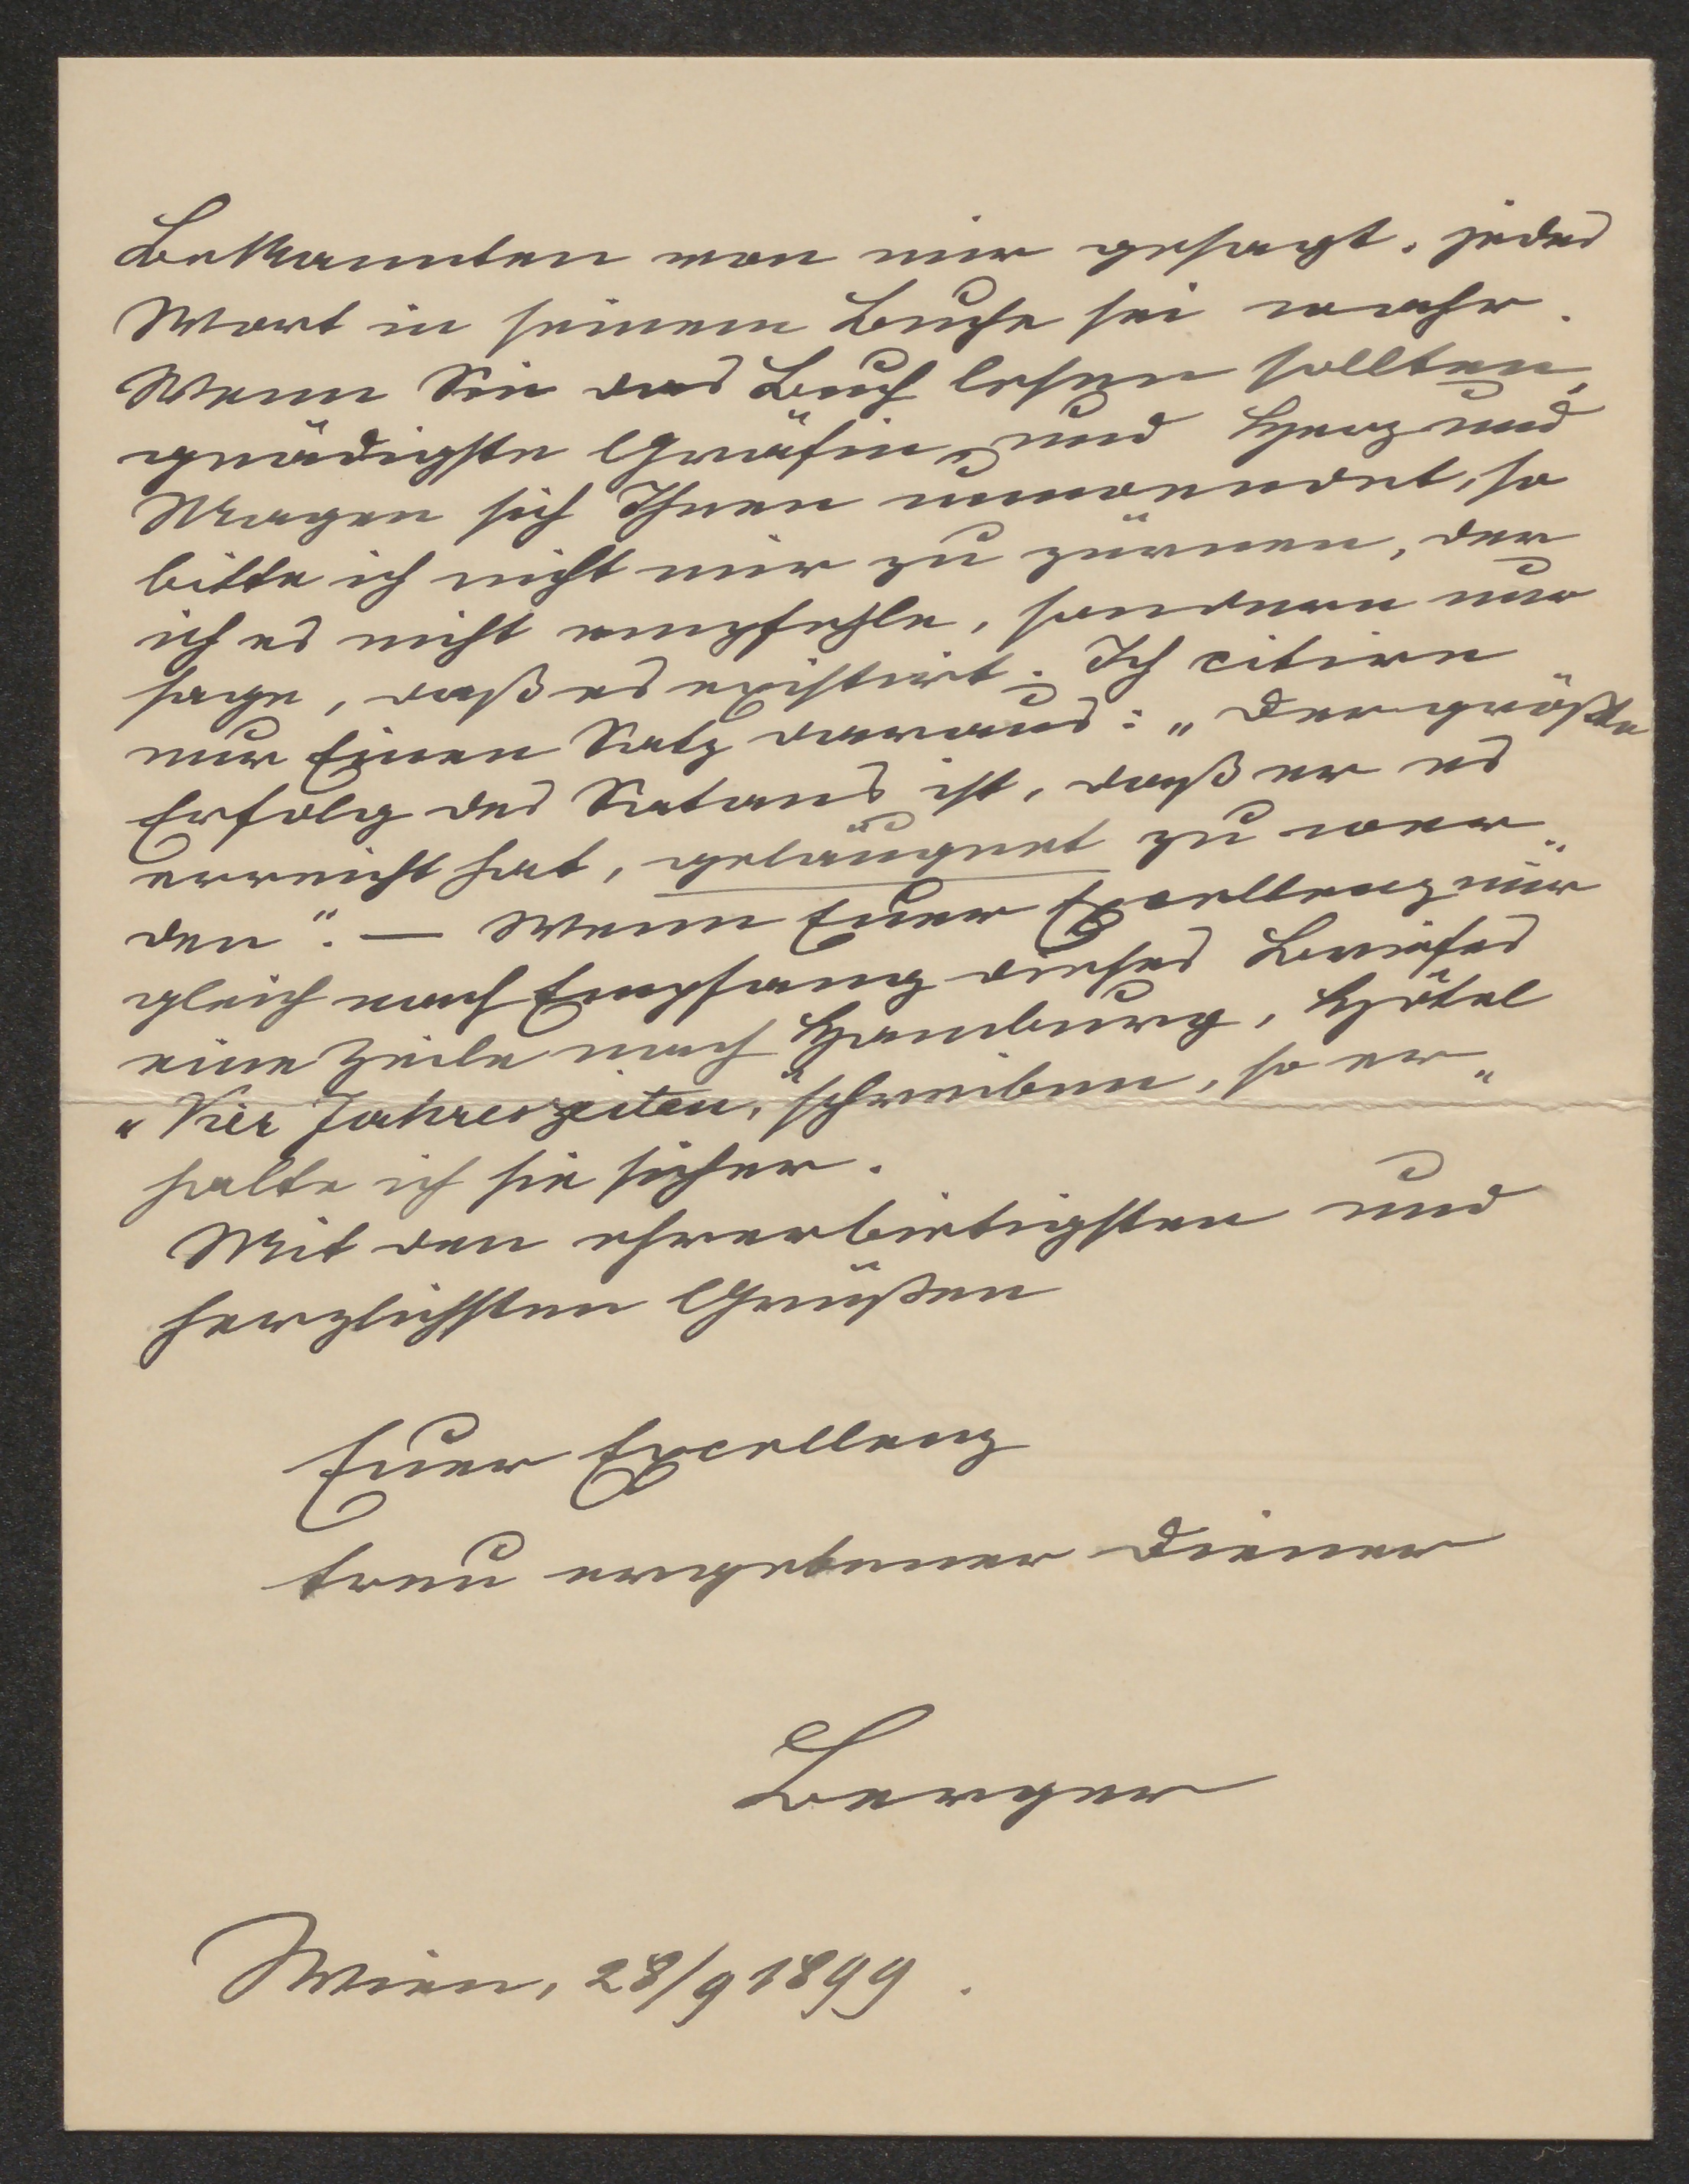 Bekannten von mir gesagt, jedes
Wort in seinem Buche sei wahr.
Wenn Sie das Buch lesen sollten,
gnädigste Gräfin, und Herz und
Magen sich Ihnen umwendet, so
bitte ich nicht mir zu zürnen, der
ich es nicht empfehle, sondern nur
sage, daß es existirt. Ich citire
nur Einen Satz daraus: „Der größte
Erfolg des Satans ist, daß er es
erreicht hat, geläugnet zu wer-
den“. — Wenn Euer Excellenz mir
gleich nach Empfang dieses Briefes
eine Zeile nach Hamburg, Hôtel
„Vier Jahreszeiten“, schreiben, so er-
halte ich sie sicher.
Mit den ehrerbietigsten und
herzlichsten Grüßen
Euer Excellenz
treu ergebener Diener
Berger
Wien, 28/9 1899.